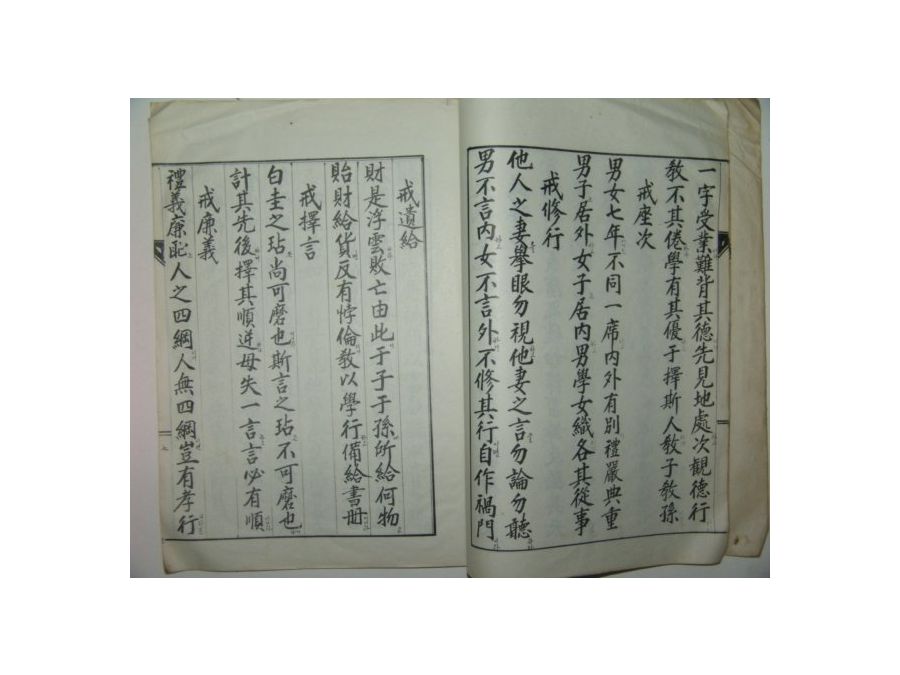 一字受業難背其德先見地處次觀德行
敎不其倦學有其優于擇斯人敎子敎孫
戒座次
男女七年不同一席內外有別禮嚴典重
男子居外女子居內男學女織各其從事
戒修行
他人之妻擧眼勿視他妻之言勿論勿聽
男不言內女不言外不修其行自作禍門
戒遺給
財是浮雲敗亡由此于子于孫所給何物
貽財給貨反有悖倫敎以學行備給書冊
戒擇言
白圭之玷尚可磨也斯言之玷不可磨也
計其先後擇其順逆毋失一言言必有順
戒廉義
禮義廉恥人之四綱人無四綱豈有孝行